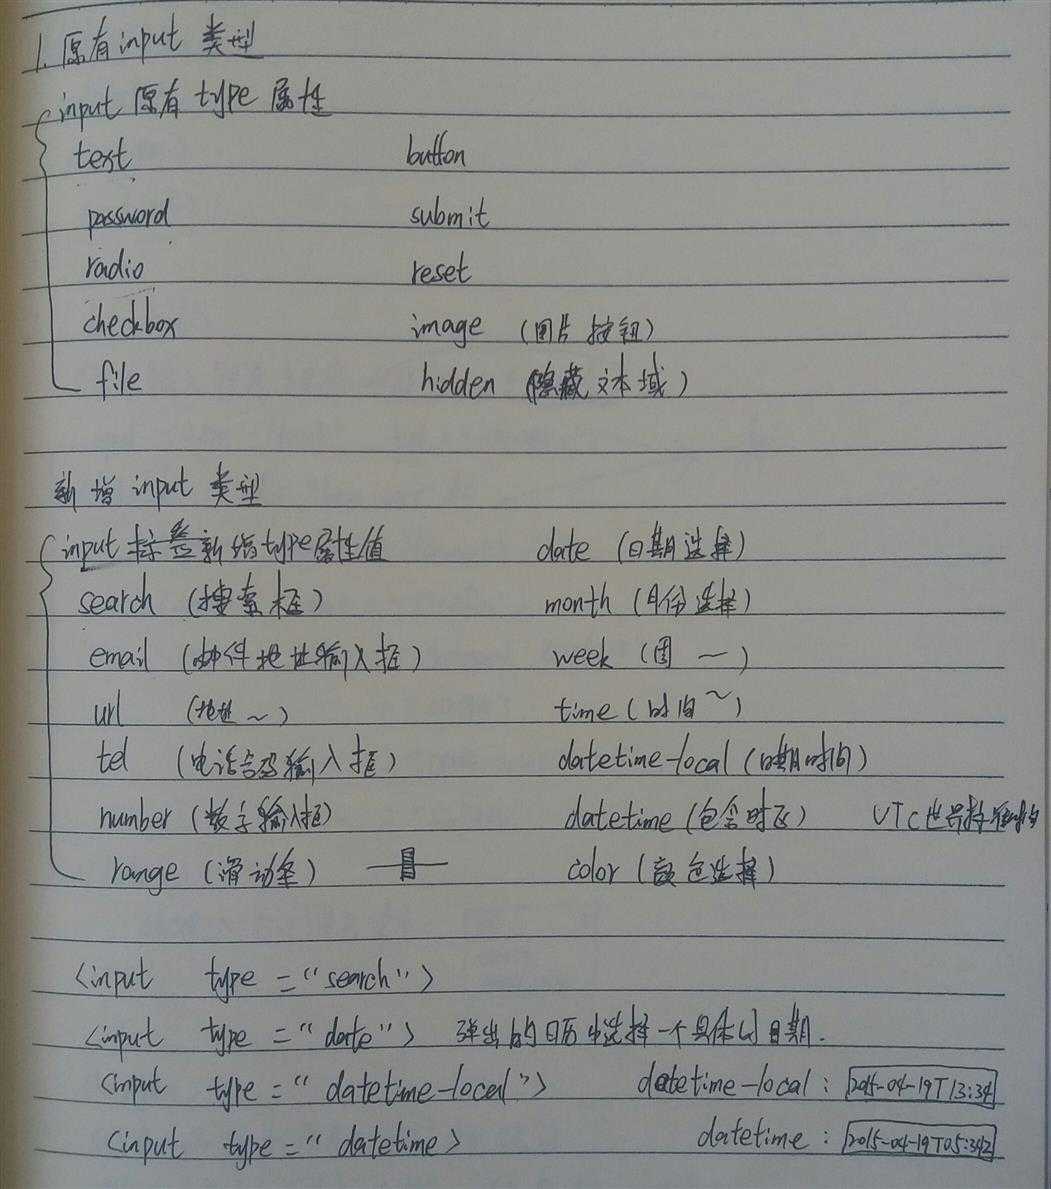 1. 原有input 类型
input 原有 type 属性
text button
password submit
radio reset
checkbox image (图片按钮)
file hidden (隐藏文本域)
新增 input 类型
input 标签新增type属性值 date (日期选择)
search (搜索框) month (月份选择)
email (邮件地址输入框) week (周 ~)
url (地址~) time (时间~)
tel (电话号码输入框) datetime-local (日期时间)
number (数字输入框) datetime (包含时区) UTC世界
range (滑动条) color (颜色选择)
<input type = "search">
<input type = "date"> 弹出的日历中选择一个具体的日期.
<input type = "datetime-local"> datetime-local : 2015-04-19T13:34
<input type = "datetime> datetime : 2015-04-19T05:34Z